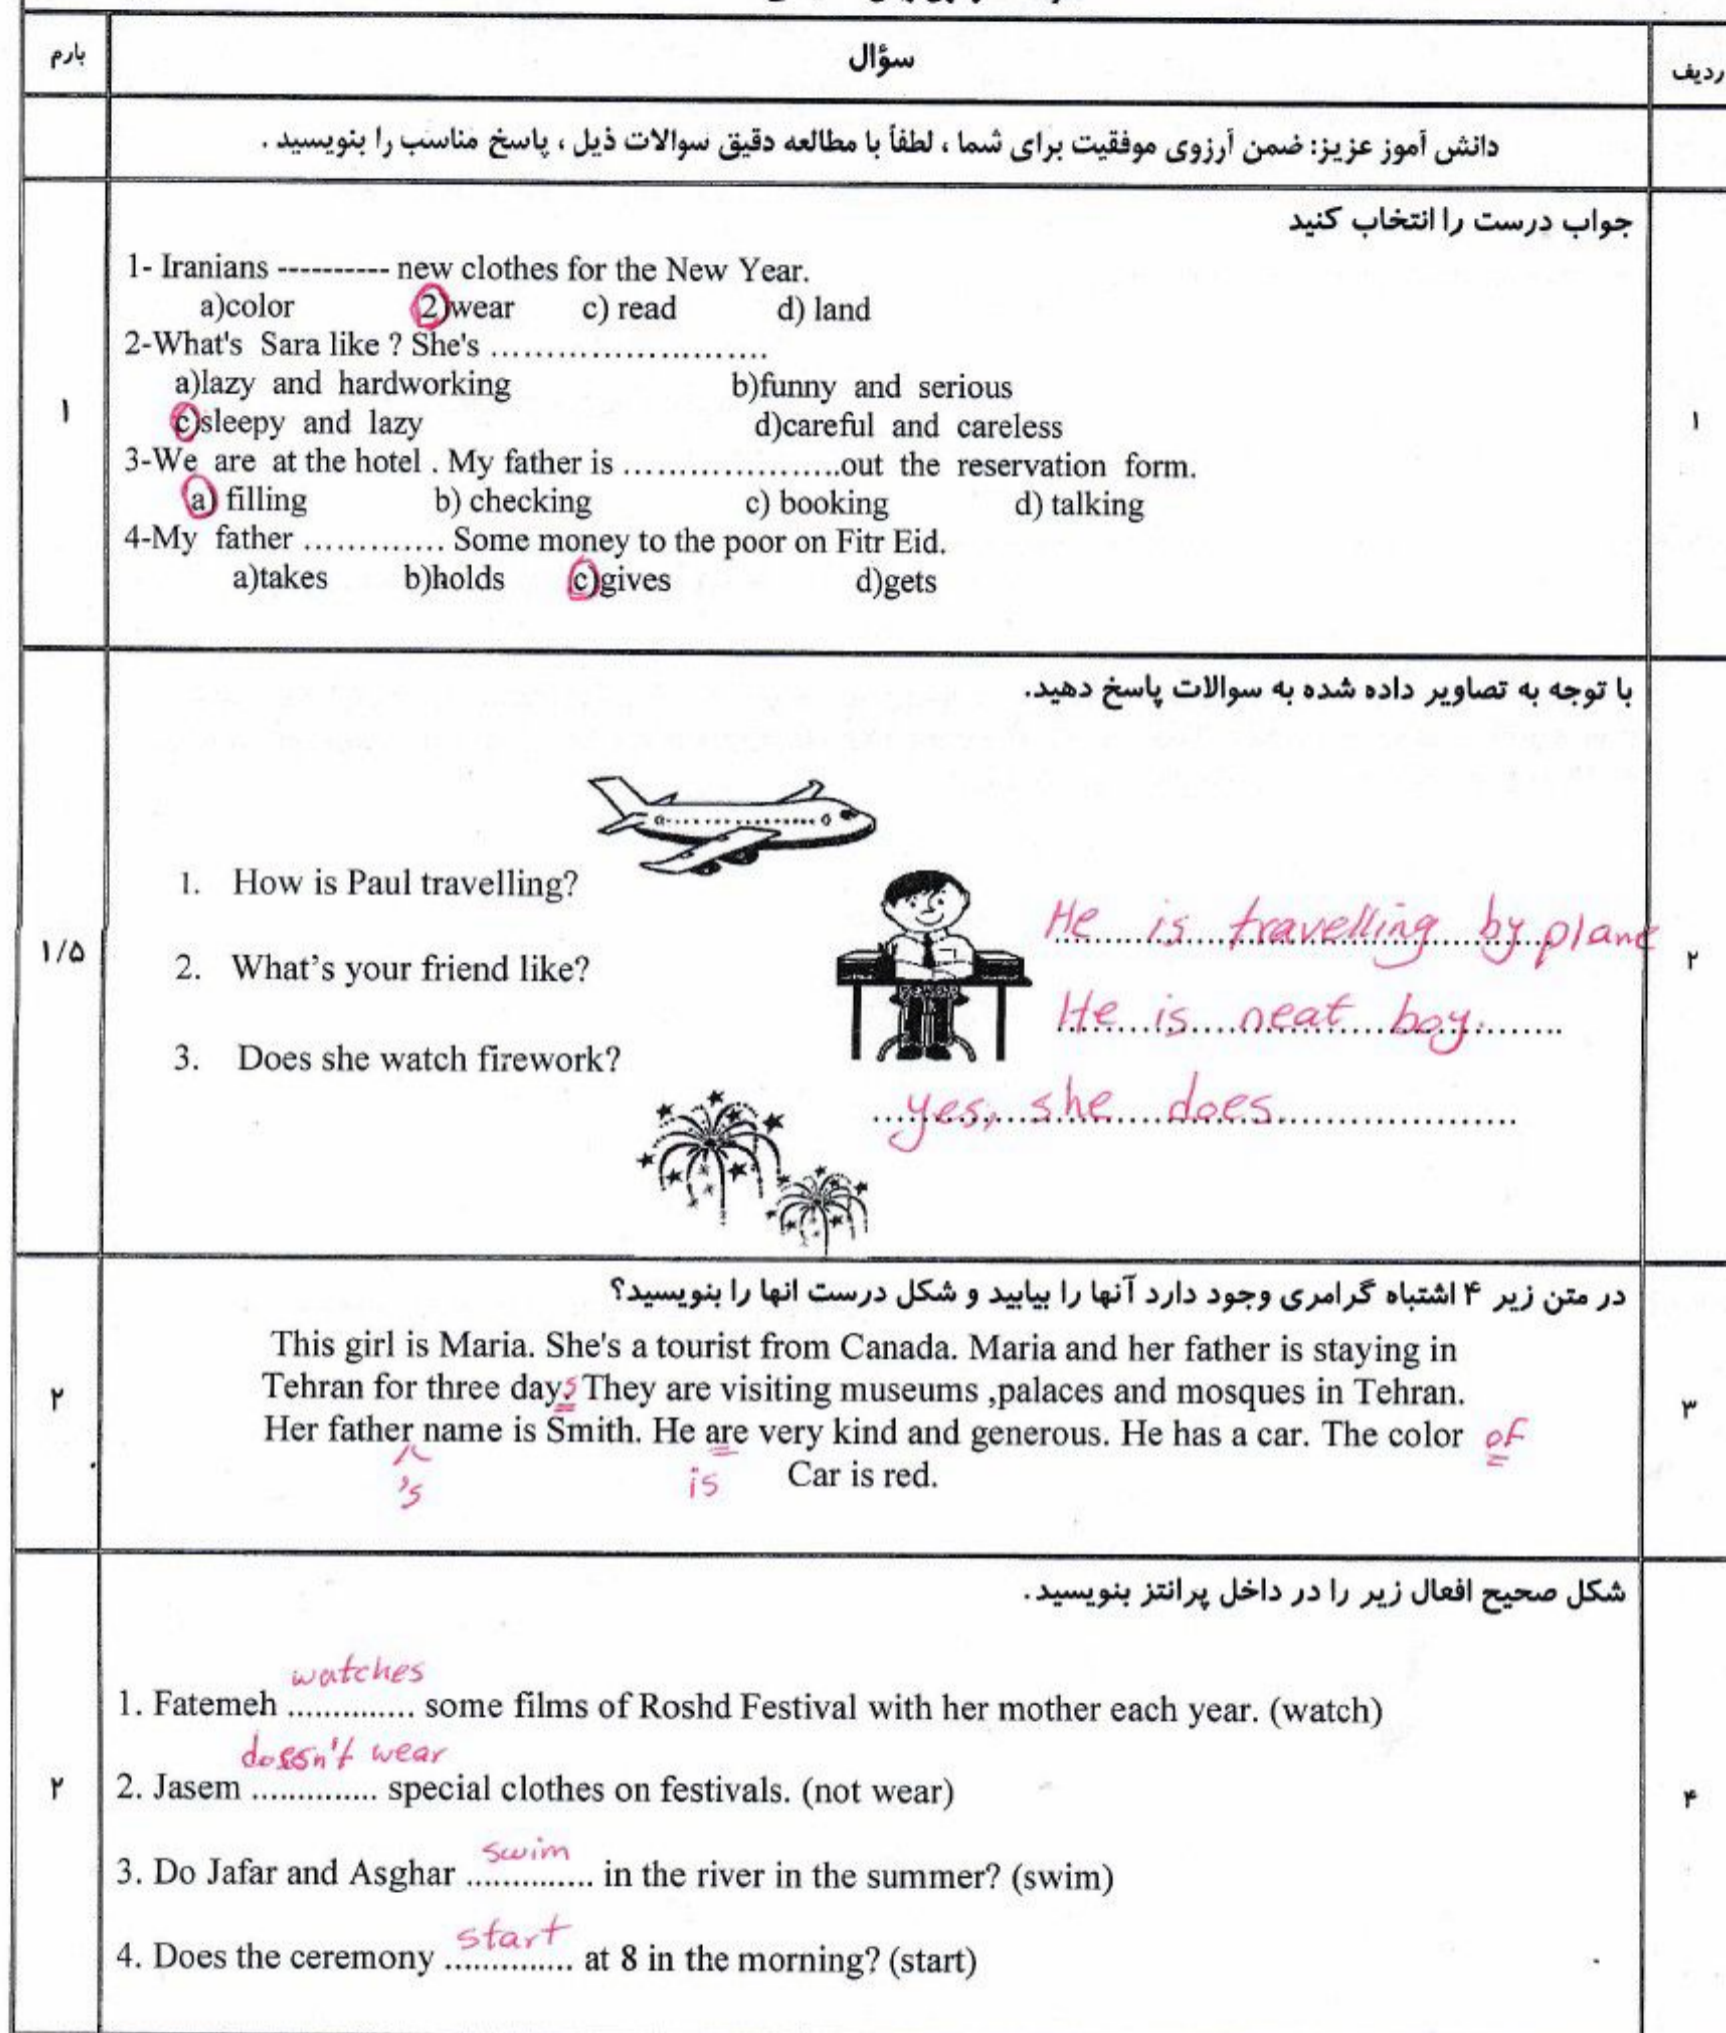 بارم سؤال ردیف
دانش آموز عزیز: ضمن آرزوی موفقیت برای شما ، لطفاً با مطالعه دقیق سوالات ذیل ، پاسخ مناسب را بنویسید .
جواب درست را انتخاب کنید
1- Iranians ---------- new clothes for the New Year.
a)color 2)wear c) read d) land
2-What's Sara like ? She's ..........................
a)lazy and hardworking b)funny and serious
c)sleepy and lazy d)careful and careless
۱ ۱
3-We are at the hotel . My father is .....................out the reservation form.
a) filling b) checking c) booking d) talking
4-My father ............. Some money to the poor on Fitr Eid.
a)takes b)holds c)gives d)gets
با توجه به تصاویر داده شده به سوالات پاسخ دهید.
1. How is Paul travelling?
He is travelling by plane
۱/۵ ۲
2. What's your friend like?
He is neat boy.
3. Does she watch firework?
yes, she does
در متن زیر ۴ اشتباه گرامری وجود دارد آنها را بیابید و شکل درست انها را بنویسید؟
This girl is Maria. She's a tourist from Canada. Maria and her father is staying in
Tehran for three day.s They are visiting museums ,palaces and mosques in Tehran.
۲ ۳
Her father name is Smith. He are very kind and generous. He has a car. The color of
's is Car is red.
شکل صحیح افعال زیر را در داخل پرانتز بنویسید.
watches
1. Fatemeh .............. some films of Roshd Festival with her mother each year. (watch)
doesn't wear
2. Jasem .............. special clothes on festivals. (not wear)
۲ ۴
swim
3. Do Jafar and Asghar .............. in the river in the summer? (swim)
start
4. Does the ceremony .............. at 8 in the morning? (start)